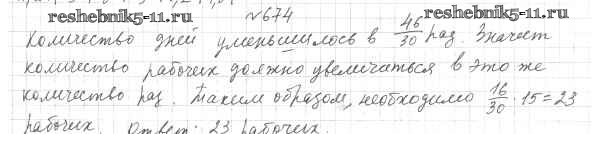 №674
reshebnik5-11.ru reshebnik5-11.ru
Количество дней уменьшилось в 46/30 раз. Значит
количество рабочих должно увеличиться в это же
количество раз. Таким образом, необходимо 16/30 · 15 = 23
рабочих. Ответ: 23 рабочих.